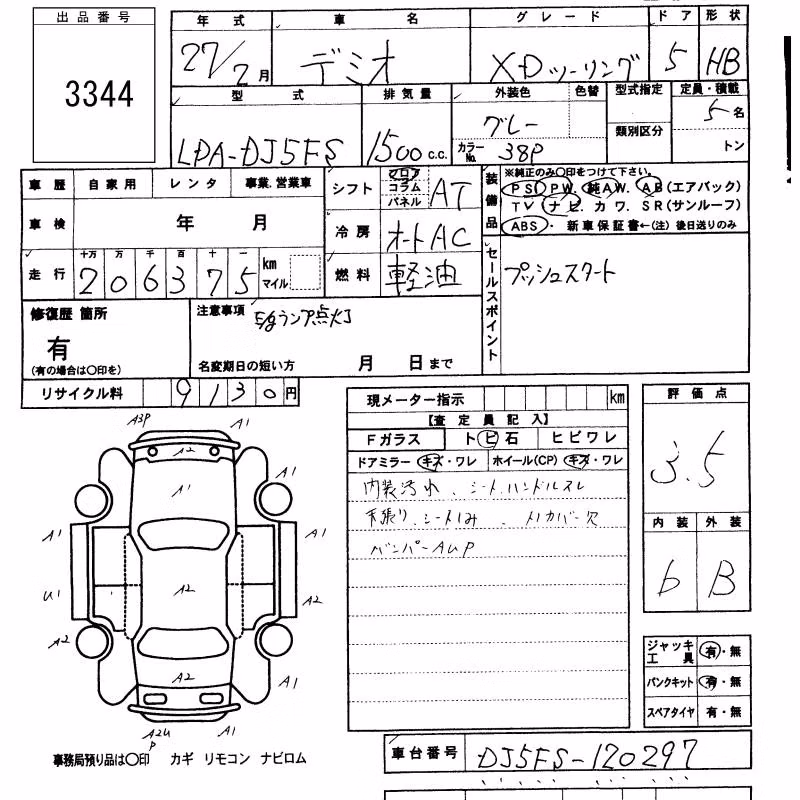 出品番号
3344
年式 車名 グレード ドア 形状
27/2月 デミオ XDツーリング 5 HB
型式 排気量 外装色 色替 型式指定 定員・積載
LDA-DJ5FS 1500c.c. グレー カラーNo. 38P 類別区分 5名
トン
車歴 自家用 レンタ 事業.営業車
車検 年 月
走行 十万 万 千 百 十 一
206375 km マイル
シフト フロア コラム パネル AT
冷房 オートAC
燃料 軽油
装備品
※純正のみ〇印をつけて下さい。
PS. PW. 純AW. AB(エアバック)
TV ナビ. カワ. SR(サンルーフ)
ABS. 新車保証書←(注) 後日送りのみ
セールスポイント
プッシュスタート
修復歴 箇所
有
(有の場合は〇印を)
注意事項
E/gランプ点灯
名変期日の短い方 月 日まで
リサイクル料 9130円
現メーター指示 km
【査定員記入】
Fガラス トビ石 ヒビワレ
ドアミラー キズ・ワレ ホイール(CP) キズ・ワレ
内装汚れ、シート.ハンドルスレ
天張り、シートしみ
バンパーAUP
評価点
3.5
内装 外装
6 B
ジャッキ工具 有・無
パンクキット 有・無
スペアタイヤ 有・無
A3P A1
A2
A1
A1 A1
A1 A1
U1 A2 A2
A2
A2 A1
A2U P A1
事務局預り品は〇印 カギ リモコン ナビロム
車台番号 DJ5FS-120297